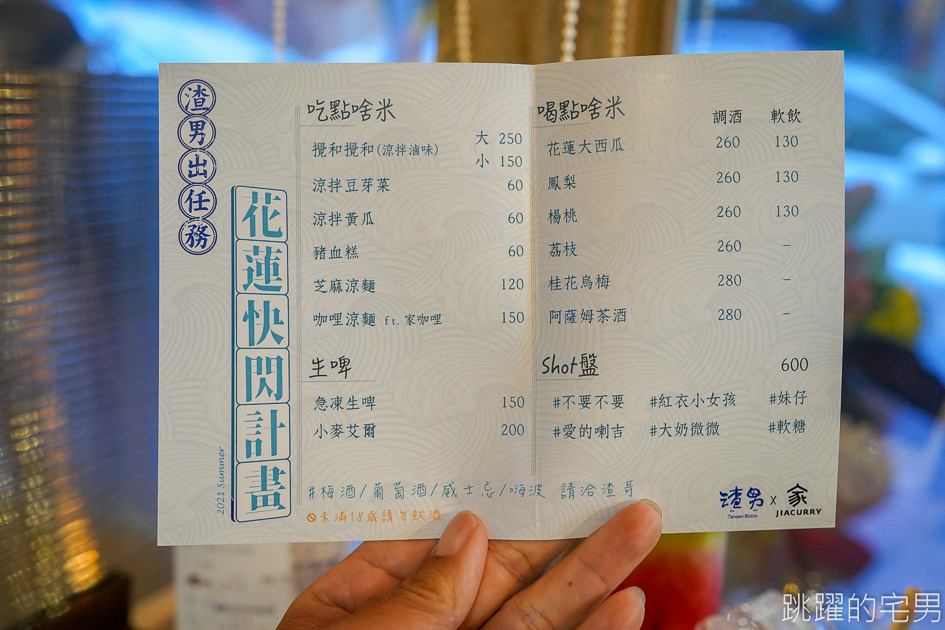 渣男出任務
花蓮快閃計畫
2021 Summer
吃點啥米
攪和攪和(涼拌滷味) 大 250
小 150
涼拌豆芽菜 60
涼拌黃瓜 60
豬血糕 60
芝麻涼麵 120
咖哩涼麵 ft.家咖哩 150
生啤
急凍生啤 150
小麥艾爾 200
喝點啥米 調酒 軟飲
花蓮大西瓜 260 130
鳳梨 260 130
楊桃 260 130
荔枝 260 -
桂花烏梅 280 -
阿薩姆茶酒 280 -
Shot盤 600
#不要不要 #紅衣小女孩 #妹仔
#愛的喇吉 #大奶微微 #軟糖
#梅酒/葡萄酒/威士忌/嗨波 請洽渣哥
未滿18歲請勿飲酒
渣男 x 家
Taiwan Bistro JIACURRY
跳躍的宅男